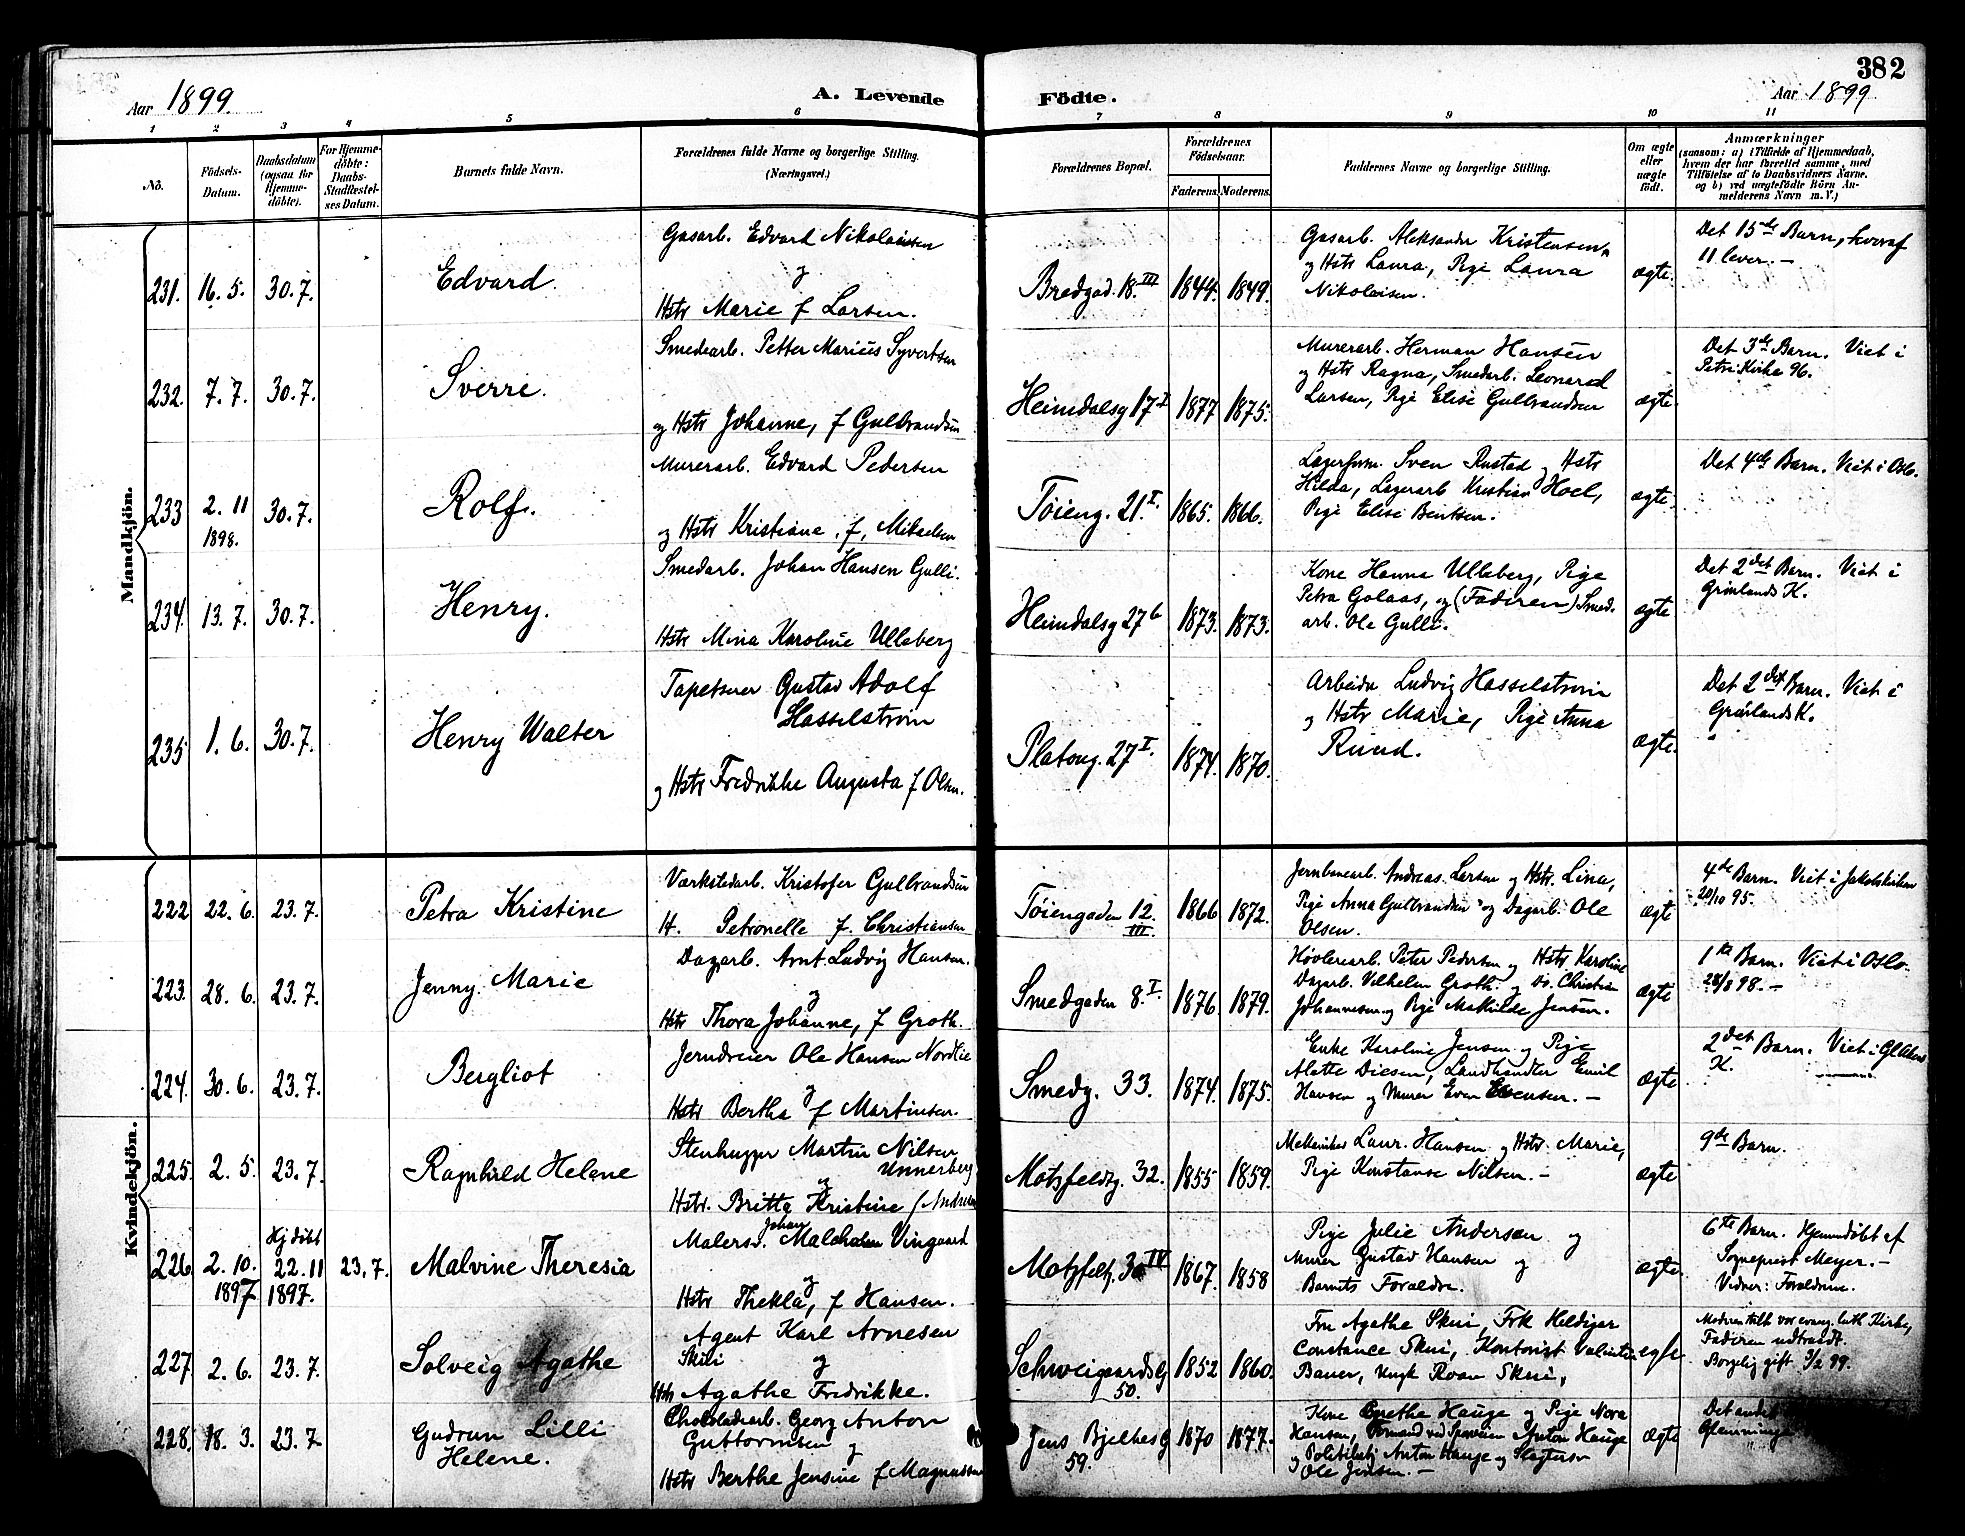 382
Aar 1899.
A. Levende Födte.
Aar 1899
1 2 3 4 5 6 7 8 9 10 11
No.
Födsels-Datum.
Daabsdatum (ogsaa for Hjemme-döbte).
For Hjemme-döbte: Daabs-Stadfæstel-ses Datum.
Barnets fulde Navn.
Forældrenes fulde Navne og borgerlige Stilling. (Næringsvei.)
Forældrenes Bopæl.
Forældrenes Födselsaar.
Faderens. Moderens.
Faddernes Navne og borgerlige Stilling.
Om ægte eller uægte födt.
Anmærkninger
(saasom: a) i Tilfælde af Hjemmedaab,
hvem der har forrettet samme, med
Tilföielse af to Daabsvidners Navne,
og b) ved uægtefödte Börn An-
melderens Navn m. V.)
Mandkjön.
231. 16. 5. 30. 7. Edvard
Gasarb. Edvard Nikolaisen
og
Hstr Marie f Larsen.
Bredgad. 18. III 1844. 1849.
Gasarb. Aleksander Kristensen
og Hstr Laura, Pige Laura
Nikolaisen.
ægte.
Det 15de Barn, hvoraf
11 lever. -
232. 7. 7. 30. 7. Sverre.
Smedearb. Petter Marius Syvertsen
og Hstr Johanne, f Gulbrandsen
Heimdalsg 17 I 1877 1875.
Murerarb. Herman Hansen
og Hstr Ragna, Smedarb. Leonard
Larsen, Pige Elise Gulbrandsen
ægte.
Det 3de Barn. Viet i
Petri Kirke 96.
233 2. 11 1898. 30. 7. Rolf.
Murerarb. Edvard Pedersen
og Hstr Kristiane f, Mikaelsen
Töieng. 21. I 1865. 1866.
Lagerform. Sven Rustad og Hstr
Hilda, Lagerarb Kristian Hoel,
Pige Elise Bentsen.
ægte.
Det 4de Barn. Viet i Oslo.
234. 13. 7. 30. 7. Henry.
Smedarb. Johan Hansen Gulli.
Hstr Mina Karoline Ulleberg
Heimdalsg 27 b 1873. 1873.
Kone Hanna Ulleberg, Pige
Petra Golaas, og (Faderen) Smed.
arb. Ole Gulli.
ægte
Det 2det Barn. Viet i
Grönlands K.
235 1. 6. 30. 7. Henry Walter
Tapetserer Gustav Adolf
Hasselström
og Hstr Fredrikke Augusta f Olsen.
Platoug. 27 I. 1874. 1870.
Arbeider Ludvig Hasselström
og Hstr Marie, Pige Anna
Ruud.
ægte.
Det 2det Barn. Viet i
Grönlands K.
Kvindekjön.
222 22. 6. 23. 7. Petra Kristine
Værkstedarb. Kristofer Gulbrandsen
H. Petronelle f. Christiansen
Töiengaden 12. III. 1866 1872.
Jernbanearb. Andreas Larsen og Hstr. Lina,
Pige Anna Gulbrandsen og Dagarb. Ole
Olsen.
ægte
4de Barn. Viet i Jakobskirken
20/10 95.
223. 28. 6. 23. 7. Jenny Marie
Dagarb. Arnt Ludvig Hansen.
og
Hstr Thora Johanne, f Groth.
Smedgaden 8. I. 1876. 1879.
Høvleriarb. Peter Pedersen og Hstr. Karoline
Dagarb. Vilhelm Groth. og Do. Christian
Johannesen og Pige Mathilde Jensen.
ægte
1ste Barn. Viet i Oslo.
28/8 98. -
224. 30. 6. 23. 7. Bergliot
Jerndreier Ole Hansen Nordlie
og
Hstr Bertha f Martinsen.
Smedg. 33. 1874. 1875.
Enke Karoline Jensen og Pige
Alette Diesen, Landhandler Emil
Hansen og Murer Even Evensen. -
ægte
2det Barn. Viet i Gl Akers
K.
225. 2. 5. 23. 7. Ragnhild Helene
Stenhugger Martin Nilsen
Unnerberg
og
Hstr. Britta Kristine f Andersen
Motzfeldtg. 32. 1855 1859.
Mekaniker Laur. Hansen og Hstr. Marie,
Pige Konstanse Nilsen. -
ægte
9de Barn.
226 2. 10. 1897 Hj döbt 22. 11 1897. 23. 7. Malvine Theresia
Malersv. Johan Malcholm Vingaard
og
Hstr Thekla, f Hansen.
Motzfeltg. 30 IV 1867. 1858
Pige Julie Andersen og
Murer Gustav Hansen og
Barnets Forældre.
ægte
6te Barn. Hjemmdöbt af
Sogneprest Meyer. -
Vidner: Forældrene.
227 2. 6. 23. 7. Solveig Agathe
Agent Karl Arnesen
Skili og
Hstr Agathe Fredrikke.
Schweigaardsg 50. 1852 1860.
Fru Agathe Skui, Frk Heldiger
Constance Skui, Kontorist Valentin
Bauer, Ungk Roar Skui,
ægte
Moderen tilh. vor evang. luth Kirke,
Faderen udtraadt.
Borgelig gift 3/2 99.
228. 18. 3. 23. 7. Gudrun Lilli
Helene.
Chokoladearb. Georg Anton
Guttormsen og
Hstr Berthe Jensine f Magnussen
Jens Bjelkes g 59. 1870 1877.
Kone Grethe Hauge og Pige Nora
Hansen, Formand ved Sporveien Anton Hauge
og Politibetj Anton Hauge og Slagtersv
Ole Jensen. -
ægte
Det andet
Glemminge